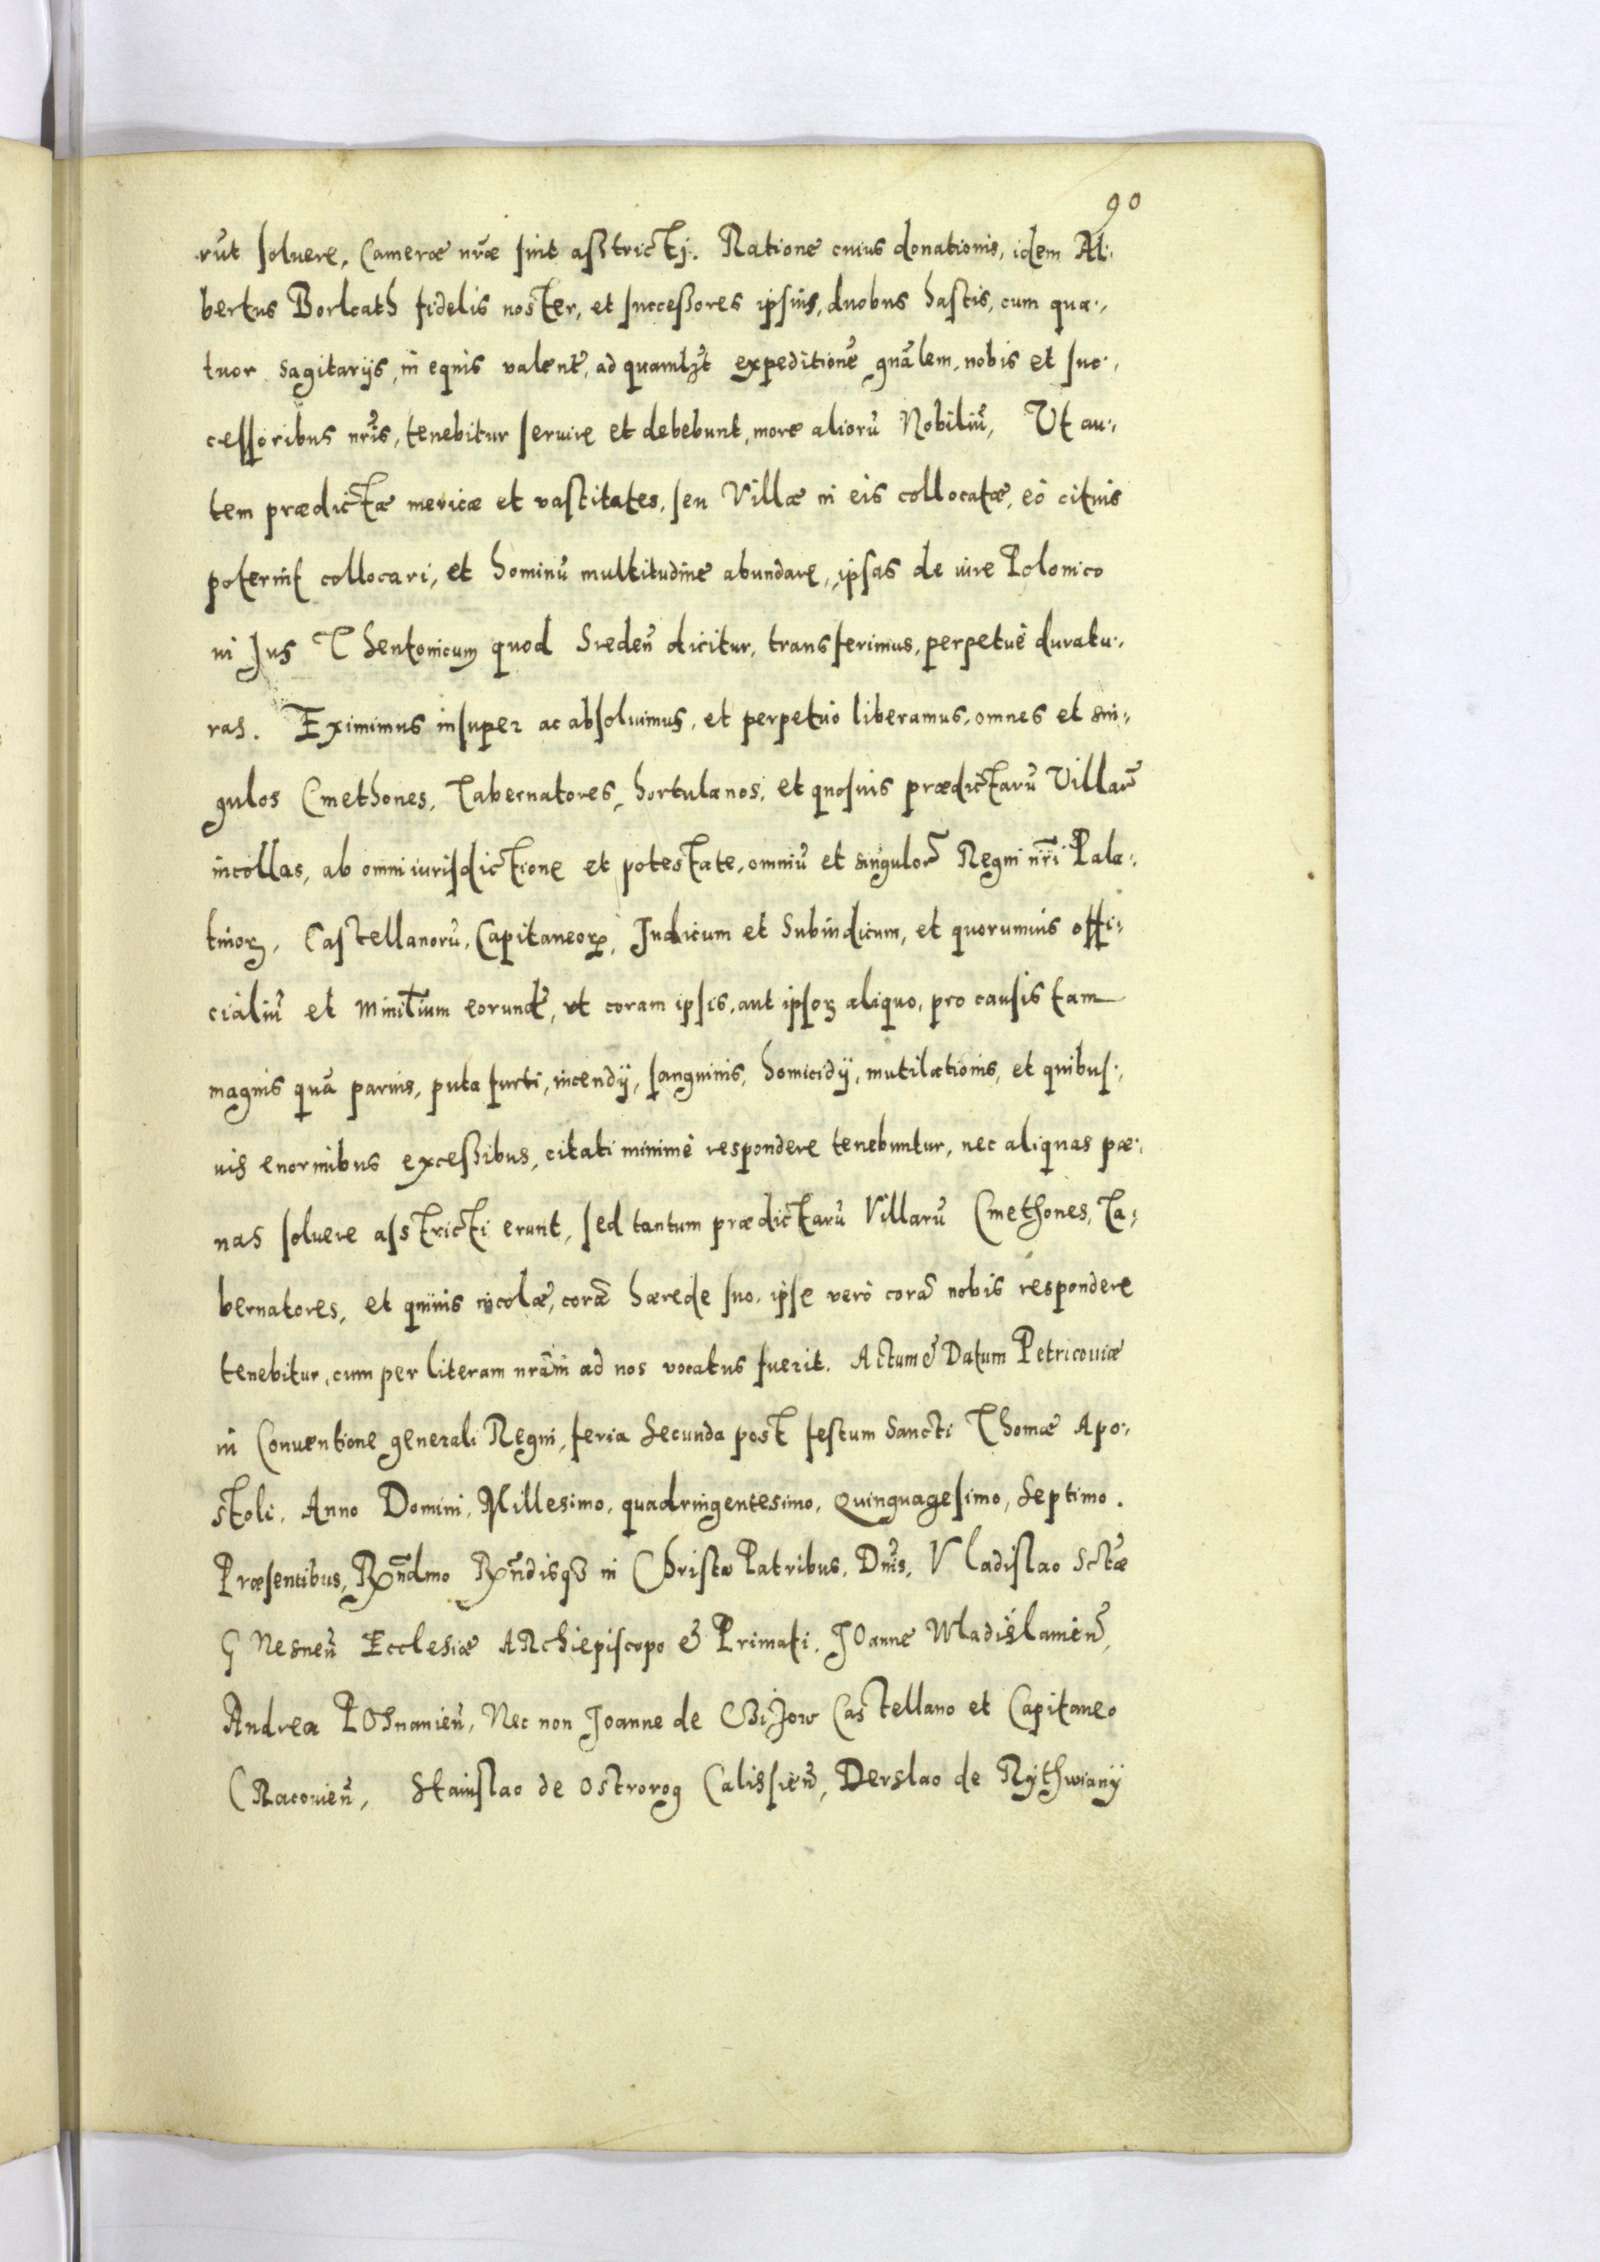 90
rūt soluere, Cameræ nr̄æ sint astricti. Ratione cuius donationis, idem Al:
bertus Borlcath fidelis noster, et successores ipsius, duobus hastis, cum qua:,
tuor sagitarijs, in equis valent̄, ad quamlȝt expeditionē gnālem, nobis et suc:,
cessoribus nr̄is, tenebitur seruire et debebunt, more aliorū Nobiliū, Ut au:,
tem prædictæ mericæ et vastitates, seu Villæ in eis collocatæ, eò citius
poterint collocari, et hominū multitudine abundare, ipsas de iure Polonico
in Jus Thentonicum quod Sreden̄ dicitur, transferimus, perpetuè duratu:,
ras. Eximimus insuper ac absoluimus, et perpetuo liberamus, omnes et sin:,
gulos Cmethones, Tabernatores, hortulanos, et quosuis prædictarū Villar̄
incollas, ab omni iurisdictione et potestate, omniū et singulor̄ Regni nr̄i Pala:,
tinorꝝ, Castellanorū, Capitaneorꝝ, Judicum et Subiudicum, et quorumuis offi:,
cialiū et Minit̄ium eorund̄, ut coram ipsis, aut ipsorꝝ aliquo, pro causis tam
magnis quā paruis, puta furti, incendij, sanguinis, homicidij, mutilationis, et quibus:,
uis enormibus excessibus, citati minimè respondere tenebuntur, nec aliquas pæ:,
nas soluere astricti erunt, sed tantum prædictarū Villarū Cmethones, Ta:,
bernatores, et quiuis incolæ, corā hærede suo, ipse verò corā nobis respondere
tenebitur, cum per literam nrām ad nos vocatus fuerit. Actum & Datum Petricouiæ
in Conuentione generali Regni, feria Secunda post festum Sancti Thomæ Apo:,
stoli, Anno Domini, Millesimo, quadringentesimo, Quinquagesimo, Septimo.
Præsentibus, Rn̄dmo Rn̄disqȝ in Christo Patribus, Dn̄is, Vladislao Sctæ
GNesnen̄ Ecclesiæ ARchiepiscopo & Primati, JOanne Wladislauien̄,
Andrea POsnanien̄, Nec non Joanne de CZiZow Castellano et Capitaneo
CRacouien̄, Stanislao de Ostrorog Calissien̄, Derslao de Rythwiany